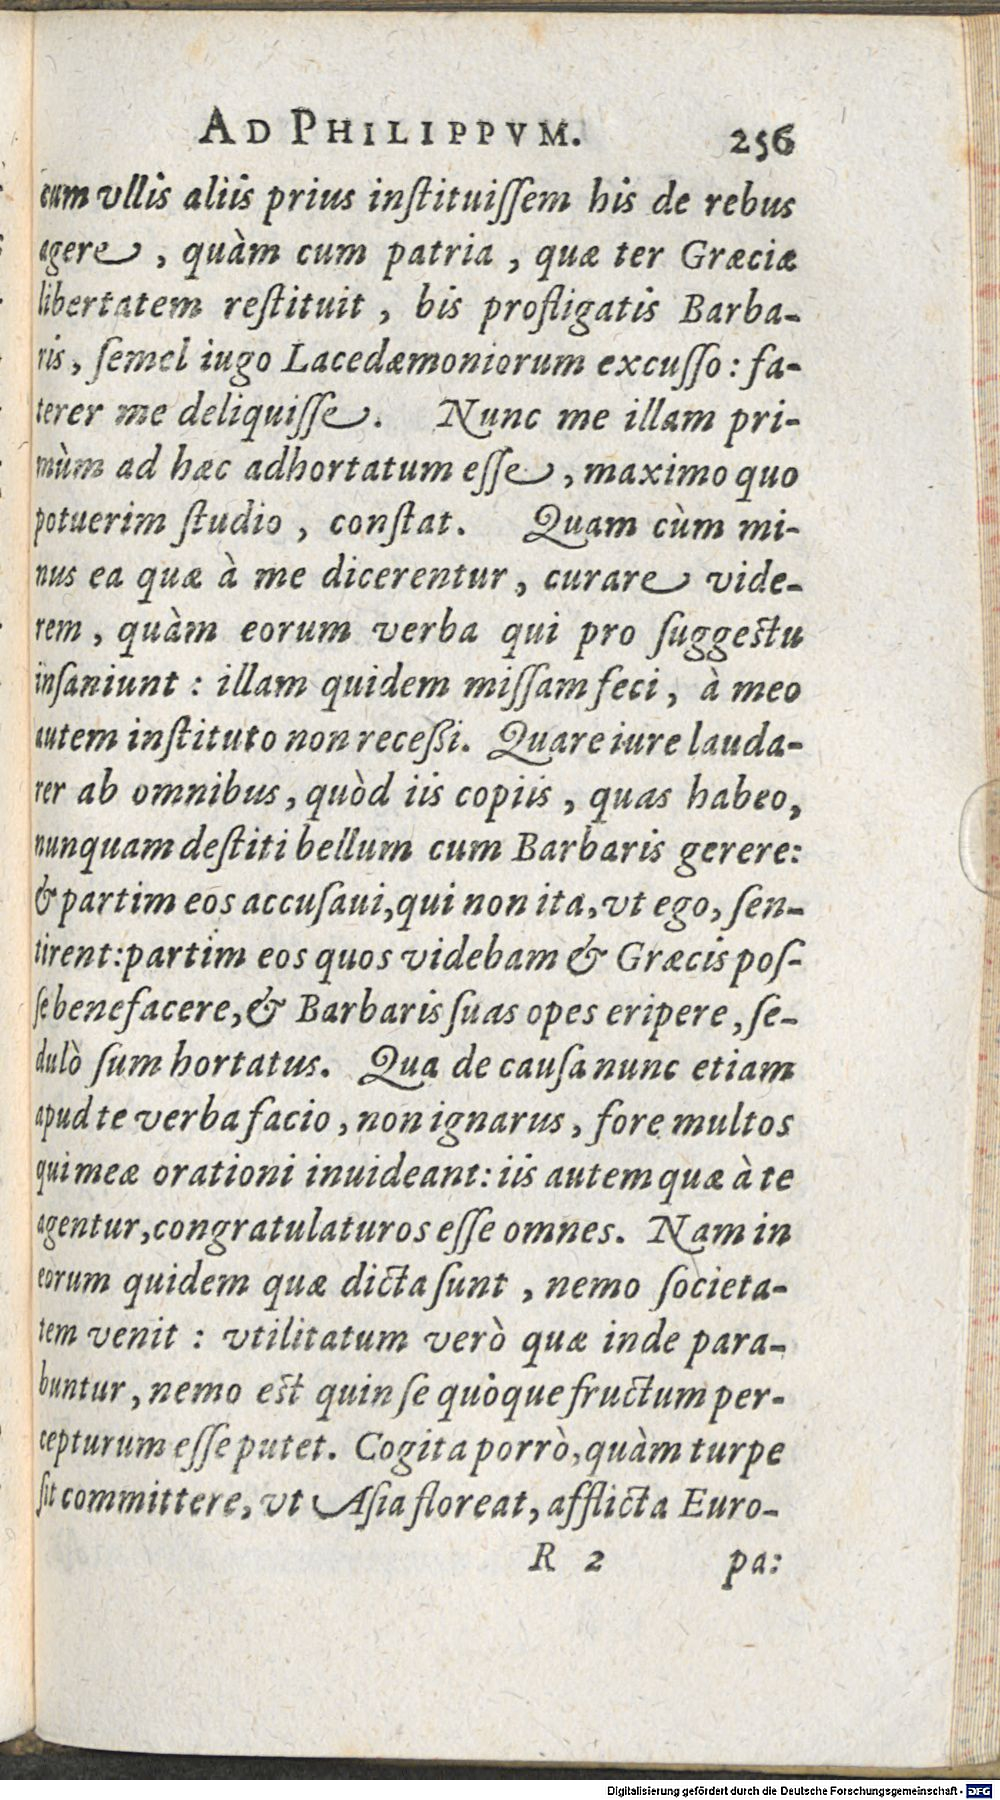 AD PHILIPPVM. 256
cum vllis aliis prius inſtituiſſem his de rebus
agere, quàm cum patria, quæ ter Græciæ
libertatem reſtituit, bis profligatis Barba-
ris, ſemel iugo Lacedæmoniorum excuſſo: fa-
terer me deliquiſſe. Nunc me illam pri-
mùm ad hæc adhortatum eſſe, maximo quo
potuerim ſtudio, conſtat. Quam cùm mi-
nus ea quæ à me dicerentur, curare vide-
rem, quàm eorum verba qui pro ſuggeſtu
inſaniunt: illam quidem miſſam feci, à meo
autem inſtituto non receßi. Quare iure lauda-
rer ab omnibus, quòd iis copiis, quas habeo,
nunquam deſtiti bellum cum Barbaris gerere:
& partim eos accuſaui, qui non ita, vt ego, ſen-
tirent: partim eos quos videbam & Græcis poſ-
ſe benefacere, & Barbaris ſuas opes eripere, ſe-
dulò ſum hortatus. Qua de cauſa nunc etiam
apud te verba facio, non ignarus, fore multos
qui meæ orationi inuideant: iis autem quæ à te
agentur, congratulaturos eſſe omnes. Nam in
eorum quidem quæ dicta ſunt, nemo ſocieta-
tem venit: vtilitatum verò quæ inde para-
buntur, nemo eſt quin ſe quoque fructum per-
cepturum eſſe putet. Cogita porrò, quàm turpe
ſit committere, vt Aſia floreat, afflicta Euro-
R 2 pa:
Digitalisierung gefördert durch die Deutsche Forschungsgemeinschaft - DFG